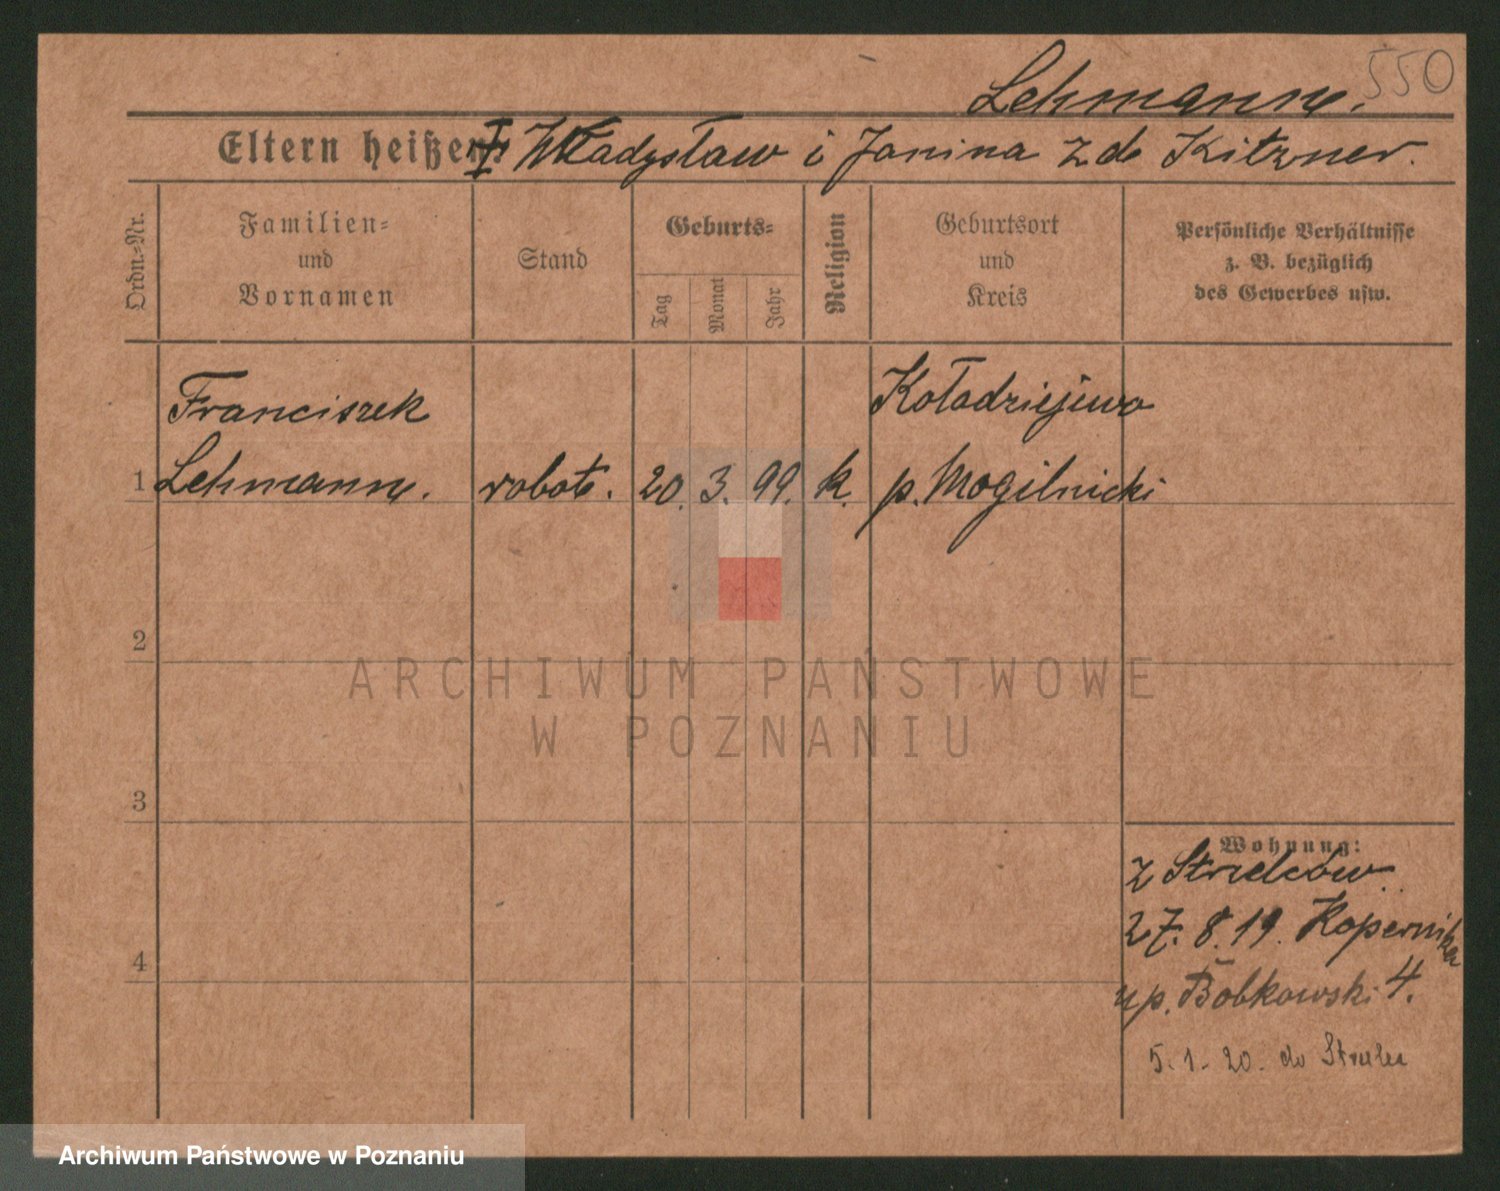 550
Lehmann.
Eltern heißen: Władysław i Janina z de Kitzner.
Ordn.-Nr.
Familien-
und
Vornamen
Stand
Geburts-
Tag
Monat
Jahr
Religion
Geburtsort
und
Kreis
Persönliche Verhältnisse
z. B. bezüglich
des Gewerbes usw.
Franciszek Kołodziejewo
1 Lehmann. robotn. 20. 3. 99. k. p. Mogilnicki
2
3
4
Wohnung:
z Strzelców
27. 8. 19. Kopernika
u p. Bobkowski 4.
5. 1. 20. do
ARCHIWUM PAŃSTWOWE
W POZNANIU
Archiwum Państwowe w Poznaniu